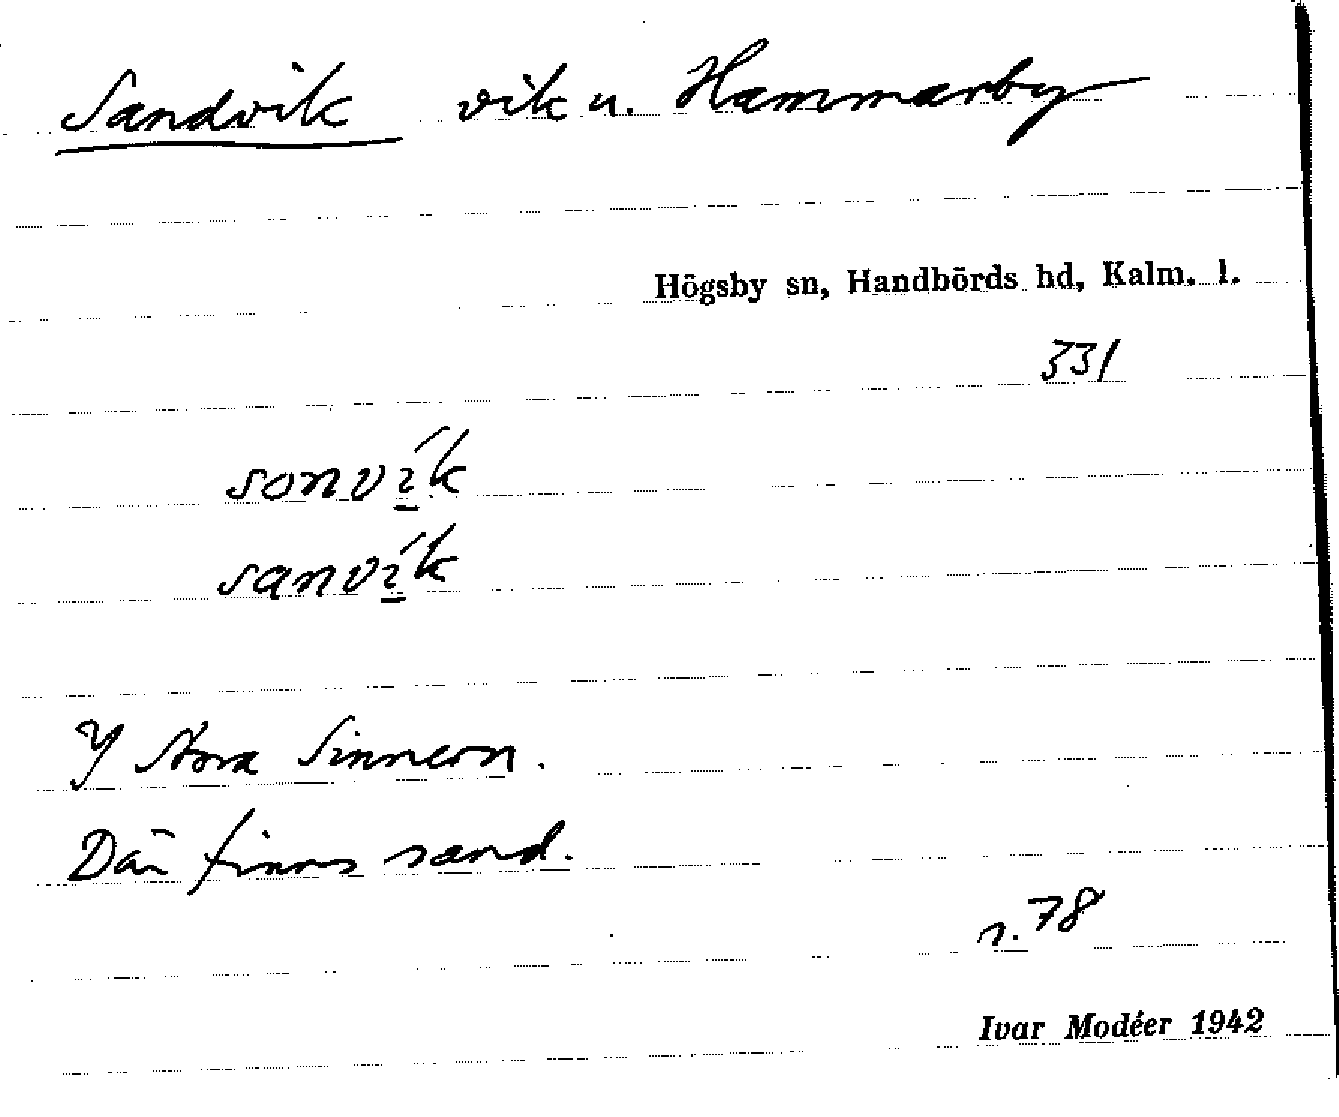 Sandvik vik u. Hammarby
Högsby sn, Handbörds hd, Kalm. l.
331
sonví̱k
sanví̱k
I Stora Sinnern.
Där finns sand.
s. 78
Ivar Modéer 1942